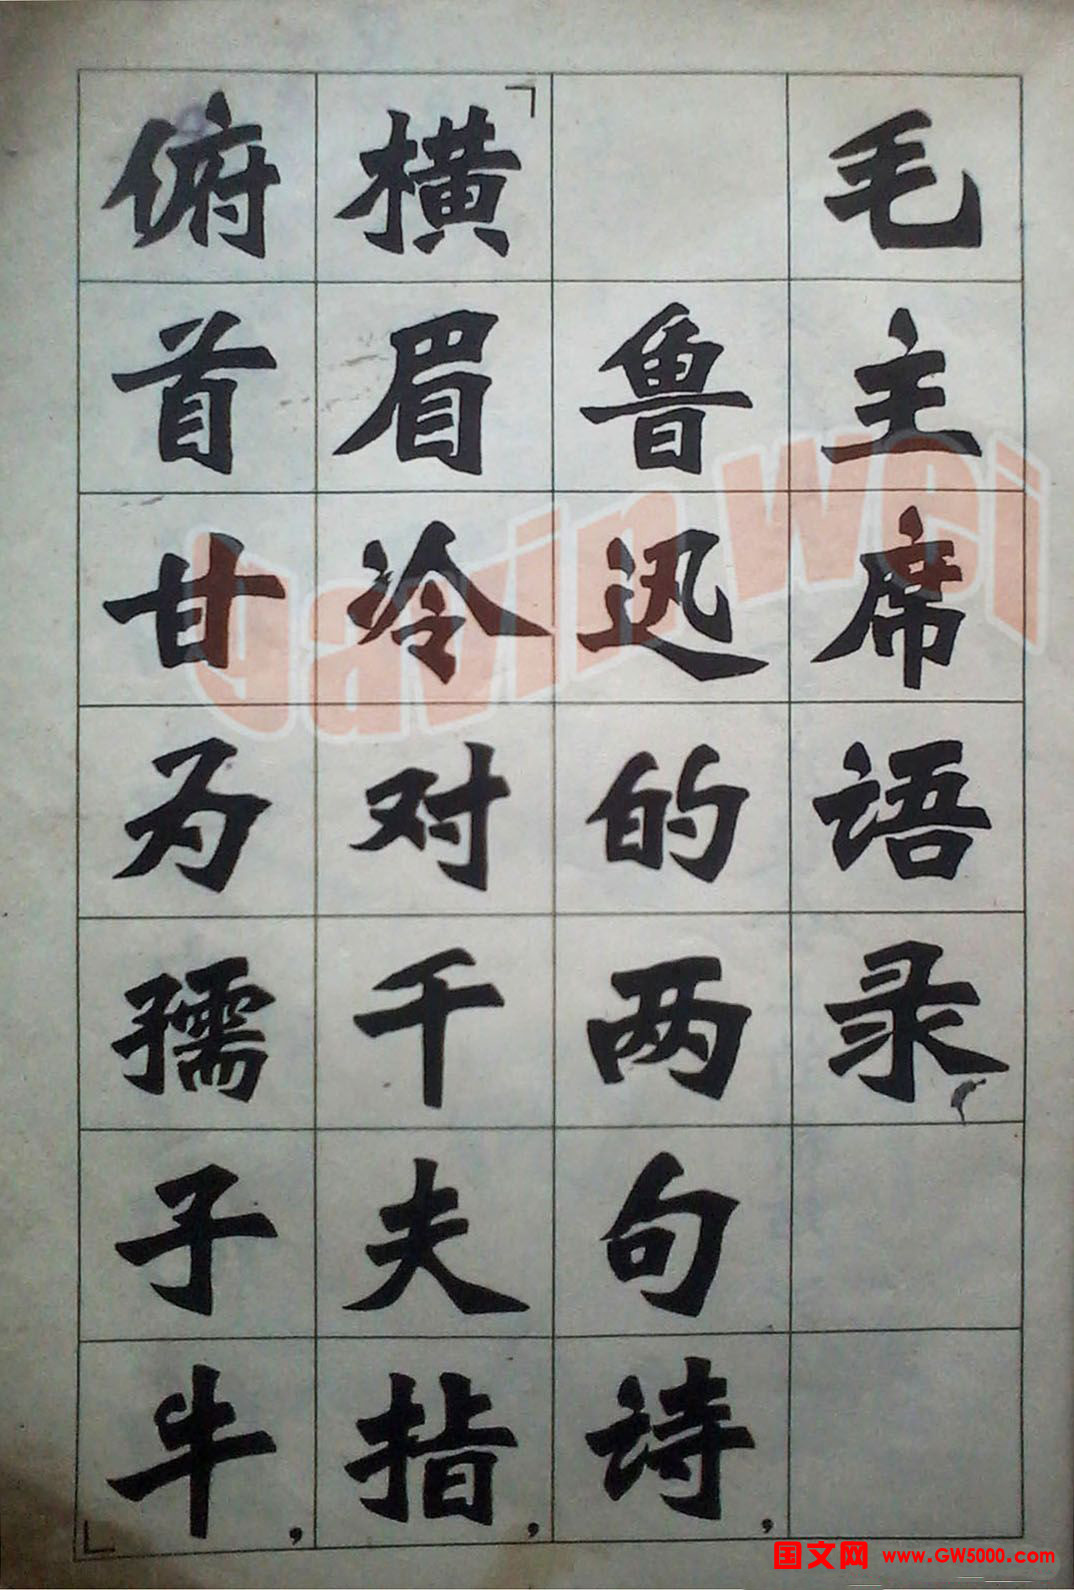 毛主席语录
鲁迅的两句诗，
﹁横眉冷对千夫指，
俯首甘为孺子牛，﹂
Gavin wei
国文网 www.GW5000.com